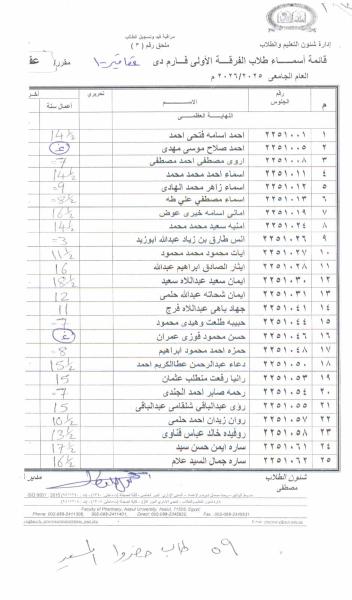 مراقبة قيد وتسجيل الطلاب
ملحق رقم ( ٣ )
إدارة شئون التعليم والطلاب
قائمة أسماء طلاب الفرقة الأولى فارم دى
مقرر/ عقاقير-١
العام الجامعى ٢٠٢٦/٢٠٢٥ م
م رقم الجلوس الاســـم تحريري أعمال سنة
النهاية العظمى
١ ٢٢٥١٠٠١ احمد اسامه فتحى احمد 14½
٢ ٢٢٥١٠٠٥ احمد صلاح موسى مهدى غ
٣ ٢٢٥١٠٠٨ اروى مصطفى احمد مصطفى 7-
٤ ٢٢٥١٠١١ اسماء احمد محمد محمد 14½
٥ ٢٢٥١٠١٢ اسماء زاهر محمد الهادى 9-
٦ ٢٢٥١٠١٣ اسماء مصطفي علي طه 8½-
٧ ٢٢٥١٠١٩ امانى اسامه خيرى عوض 16½
٨ ٢٢٥١٠٢٤ امنيه سعيد محمد محمد 14½
٩ ٢٢٥١٠٢٦ انس طارق بن زياد عبدالله ابوزيد 3-
١٠ ٢٢٥١٠٢٧ ايات محمود محمد محمود 11½
١١ ٢٢٥١٠٢٨ ايثار الصادق ابراهيم عبدالله 16
١٢ ٢٢٥١٠٣٠ ايمان سعيد عبداللاه سعيد 18½
١٣ ٢٢٥١٠٣١ ايمان شحاته عبدالله حلمى 12
١٤ ٢٢٥١٠٤١ جهاد باهى عبداللاه فرج 11
١٥ ٢٢٥١٠٤٤ حبيبه طلعت وهيدى محمود 7-
١٦ ٢٢٥١٠٤٦ حسن محمود فوزى عمران غ
١٧ ٢٢٥١٠٤٨ حمزه احمد محمود ابراهيم 8-
١٨ ٢٢٥١٠٥٠ دعاء عبدالرحمن عطاالكريم احمد 15½
١٩ ٢٢٥١٠٥٣ رانيا رفعت متطلب عثمان 15
٢٠ ٢٢٥١٠٥٤ رحمه صابر احمد الجندى 7-
٢١ ٢٢٥١٠٥٥ رؤى عبدالباقي شلقامى عبدالباقى 15
٢٢ ٢٢٥١٠٥٧ روان زيدان احمد حلمى 10½
٢٣ ٢٢٥١٠٥٨ روفيده خالد عباس قناوى 13½
٢٤ ٢٢٥١٠٦١ ساره ايمن حسن سيد 17½
٢٥ ٢٢٥١٠٦٢ ساره جمال السيد علام 16½
شئون الطلاب
مصطفى
Faculty of Pharmacy, Assiut University, Assiut, 71526, Egypt
٥٩ طالب حضروا